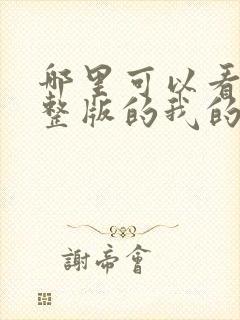 哪里可以看
整版的我的
謝帝會